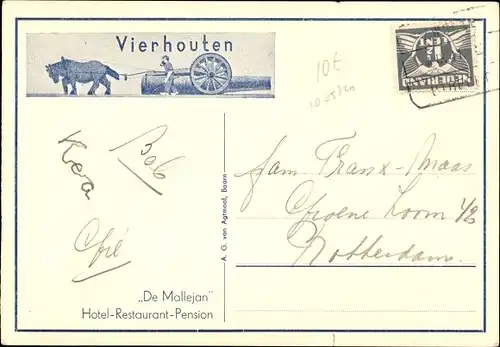 Vierhouten
CENT
NEDERLAND
10£
Bob
Kea
fam Franx-Maas
Groene Loom 1/2
Rotterdam.
A. G. van Agtmaal, Baarn
„De Mallejan"
Hotel-Restaurant-Pension